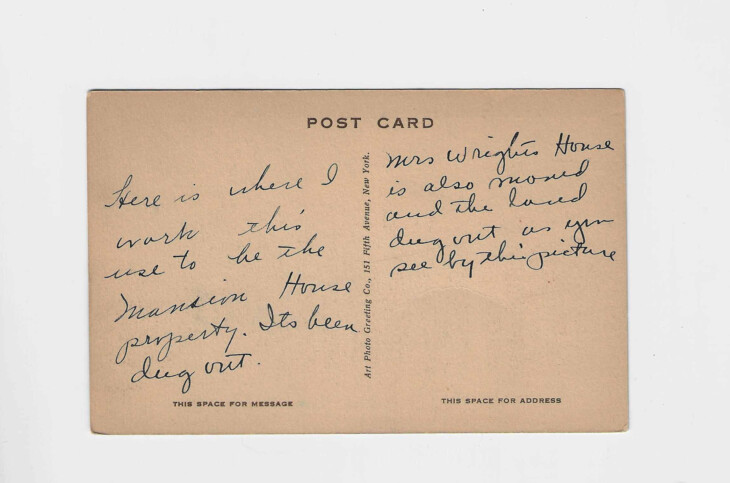 POST CARD
Here is where I
work this
use to be the
Mansion House
property. Its been
dug out.
THIS SPACE FOR MESSAGE
Art Photo Greeting Co., 151 Fifth Avenue, New York.
Mrs Wrights House
is also moved
and the land
dug out as you
see by this picture
THIS SPACE FOR ADDRESS